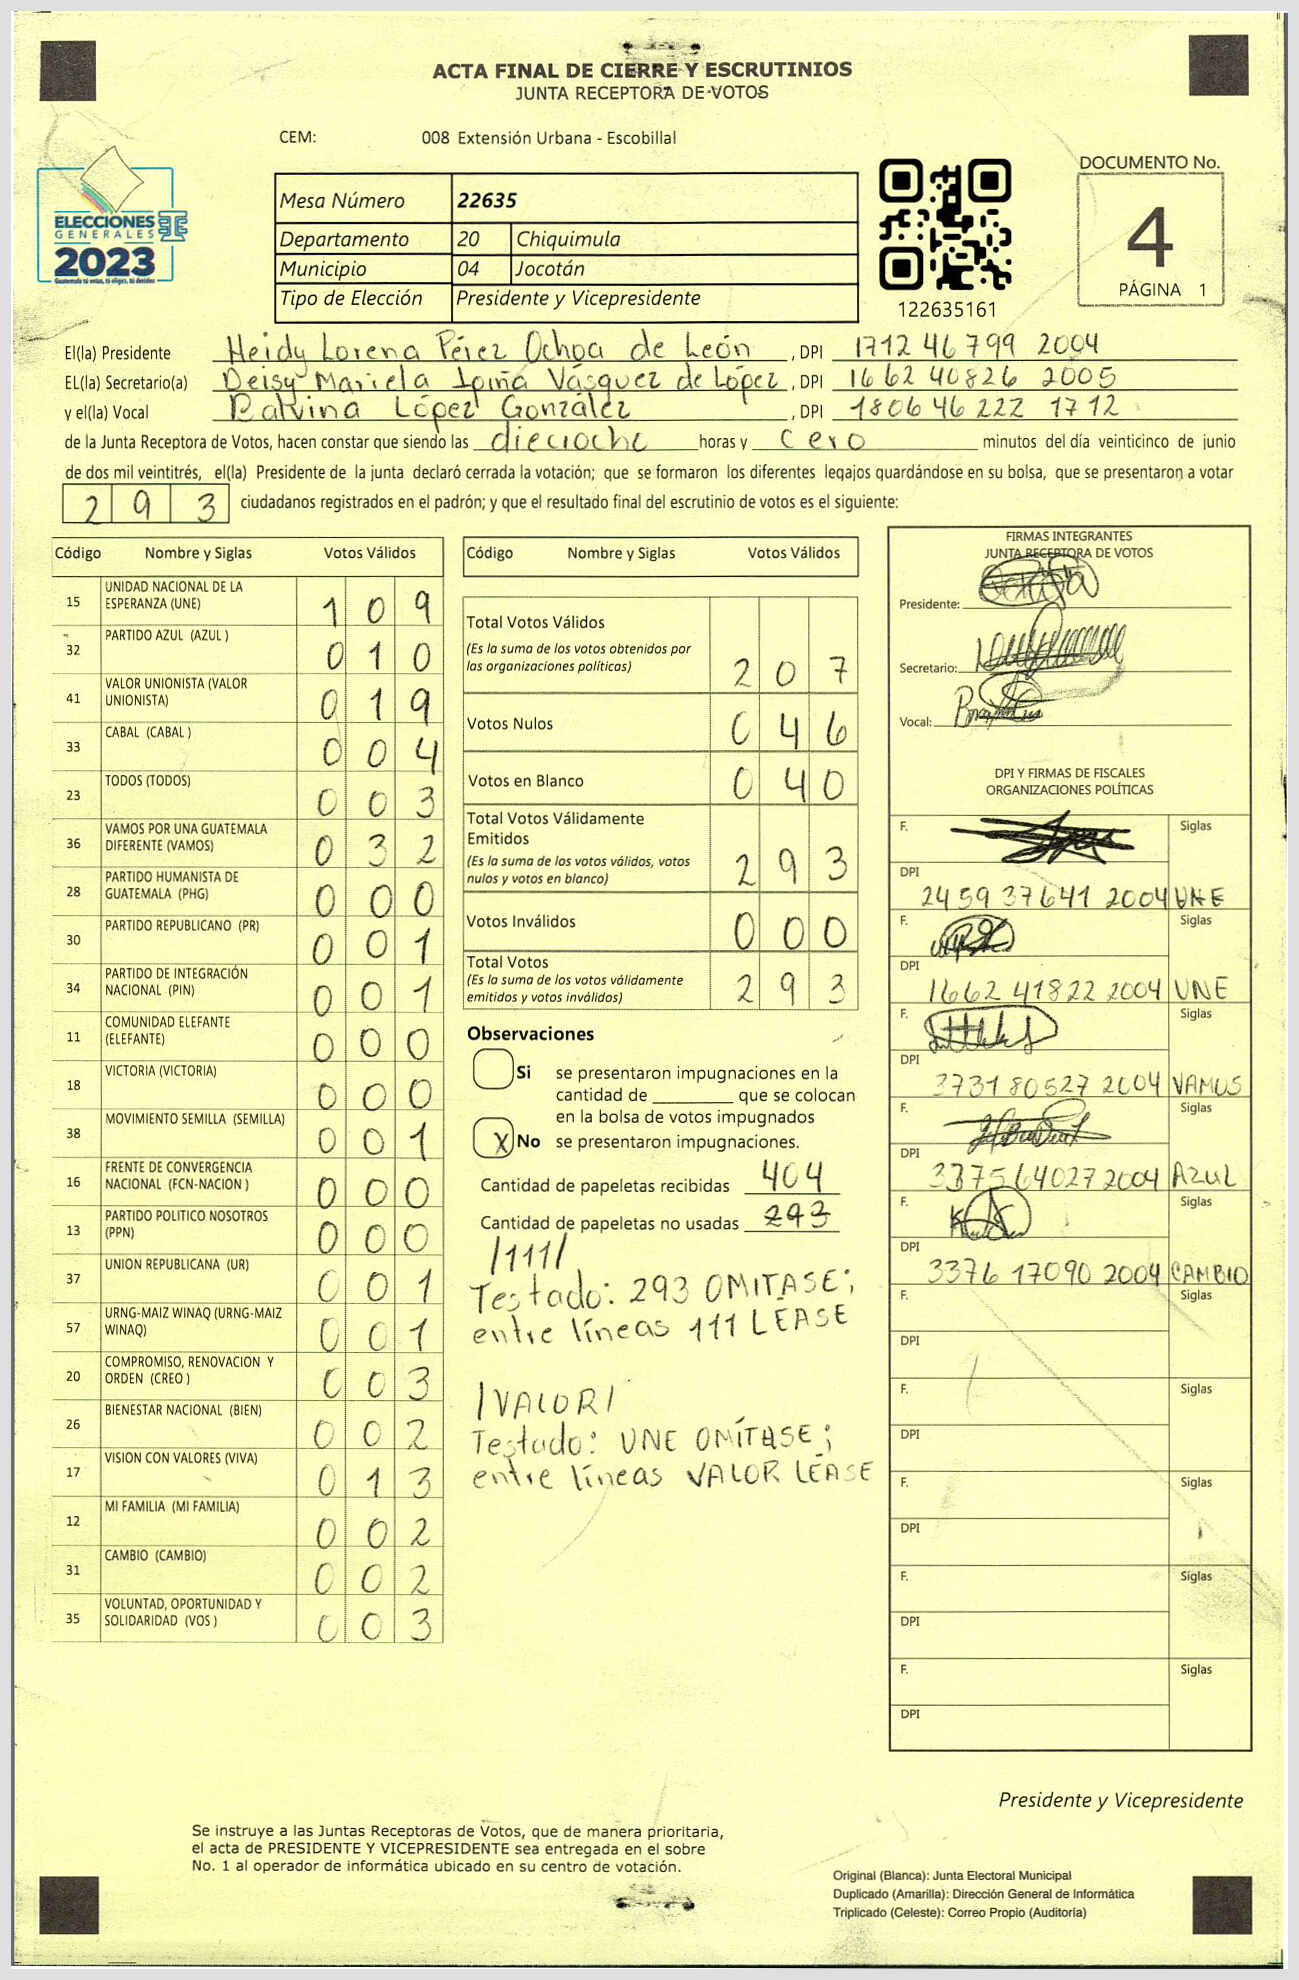 ACTA FINAL DE CIERRE Y ESCRUTINIOS
JUNTA RECEPTORA DE VOTOS
CEM: 008 Extensión Urbana - Escobillal
ELECCIONES
GENERALES
2023
Mesa Número 22635
Departamento 20 Chiquimula
Municipio 04 Jocotán
Tipo de Elección Presidente y Vicepresidente
122635161
DOCUMENTO No.
4
PÁGINA 1
El(la) Presidente Heidy Lorena Pérez Ochoa de León , DPI 1712 46799 2004
EL(la) Secretario(a) Deisy Mariela Vásquez de López , DPI 1662 40826 2005
y el(la) Vocal Balvina López González , DPI 1806 46222 1712
de la Junta Receptora de Votos, hacen constar que siendo las dieciocho horas y cero minutos del día veinticinco de junio
de dos mil veintitrés, el(la) Presidente de la junta declaró cerrada la votación; que se formaron los diferentes legajos guardándose en su bolsa, que se presentaron a votar
293 ciudadanos registrados en el padrón; y que el resultado final del escrutinio de votos es el siguiente:
Código Nombre y Siglas Votos Válidos
15 UNIDAD NACIONAL DE LA ESPERANZA (UNE) 109
32 PARTIDO AZUL (AZUL ) 010
41 VALOR UNIONISTA (VALOR UNIONISTA) 019
33 CABAL (CABAL ) 004
23 TODOS (TODOS) 003
36 VAMOS POR UNA GUATEMALA DIFERENTE (VAMOS) 032
28 PARTIDO HUMANISTA DE GUATEMALA (PHG) 000
30 PARTIDO REPUBLICANO (PR) 001
34 PARTIDO DE INTEGRACIÓN NACIONAL (PIN) 001
11 COMUNIDAD ELEFANTE (ELEFANTE) 000
18 VICTORIA (VICTORIA) 000
38 MOVIMIENTO SEMILLA (SEMILLA) 001
16 FRENTE DE CONVERGENCIA NACIONAL (FCN-NACION ) 000
13 PARTIDO POLITICO NOSOTROS (PPN) 000
37 UNION REPUBLICANA (UR) 001
57 URNG-MAIZ WINAQ (URNG-MAIZ WINAQ) 001
20 COMPROMISO, RENOVACION Y ORDEN (CREO ) 003
26 BIENESTAR NACIONAL (BIEN) 002
17 VISION CON VALORES (VIVA) 013
12 MI FAMILIA (MI FAMILIA) 002
31 CAMBIO (CAMBIO) 002
35 VOLUNTAD, OPORTUNIDAD Y SOLIDARIDAD (VOS ) 003
Código Nombre y Siglas Votos Válidos
Total Votos Válidos
(Es la suma de los votos obtenidos por
las organizaciones políticas) 207
Votos Nulos 046
Votos en Blanco 040
Total Votos Válidamente
Emitidos
(Es la suma de los votos válidos, votos
nulos y votos en blanco) 293
Votos Inválidos 000
Total Votos
(Es la suma de los votos válidamente
emitidos y votos inválidos) 293
Observaciones
Si se presentaron impugnaciones en la
cantidad de ________ que se colocan
en la bolsa de votos impugnados
X No se presentaron impugnaciones.
Cantidad de papeletas recibidas 404
Cantidad de papeletas no usadas 293
/111/
Testado: 293 OMITASE;
entre líneas 111 LEASE
/VALOR/
Testado: UNE OMÍTASE;
entre líneas VALOR LEASE
FIRMAS INTEGRANTES
JUNTA RECEPTORA DE VOTOS
Presidente:
Secretario:
Vocal:
DPI Y FIRMAS DE FISCALES
ORGANIZACIONES POLÍTICAS
F. Siglas
DPI
2459 37641 2004 UNE
F. Siglas
DPI
1662 41822 2004 UNE
F. Siglas
DPI
3731 80527 2004 VAMOS
F. Siglas
DPI
3375 64027 2004 AZUL
F. Siglas
DPI
3376 17090 2004 CAMBIO
F. Siglas
DPI
F. Siglas
DPI
F. Siglas
DPI
F. Siglas
DPI
F. Siglas
DPI
Presidente y Vicepresidente
Se instruye a las Juntas Receptoras de Votos, que de manera prioritaria,
el acta de PRESIDENTE Y VICEPRESIDENTE sea entregada en el sobre
No. 1 al operador de informática ubicado en su centro de votación.
Original (Blanca): Junta Electoral Municipal
Duplicado (Amarilla): Dirección General de Informática
Triplicado (Celeste): Correo Propio (Auditoría)